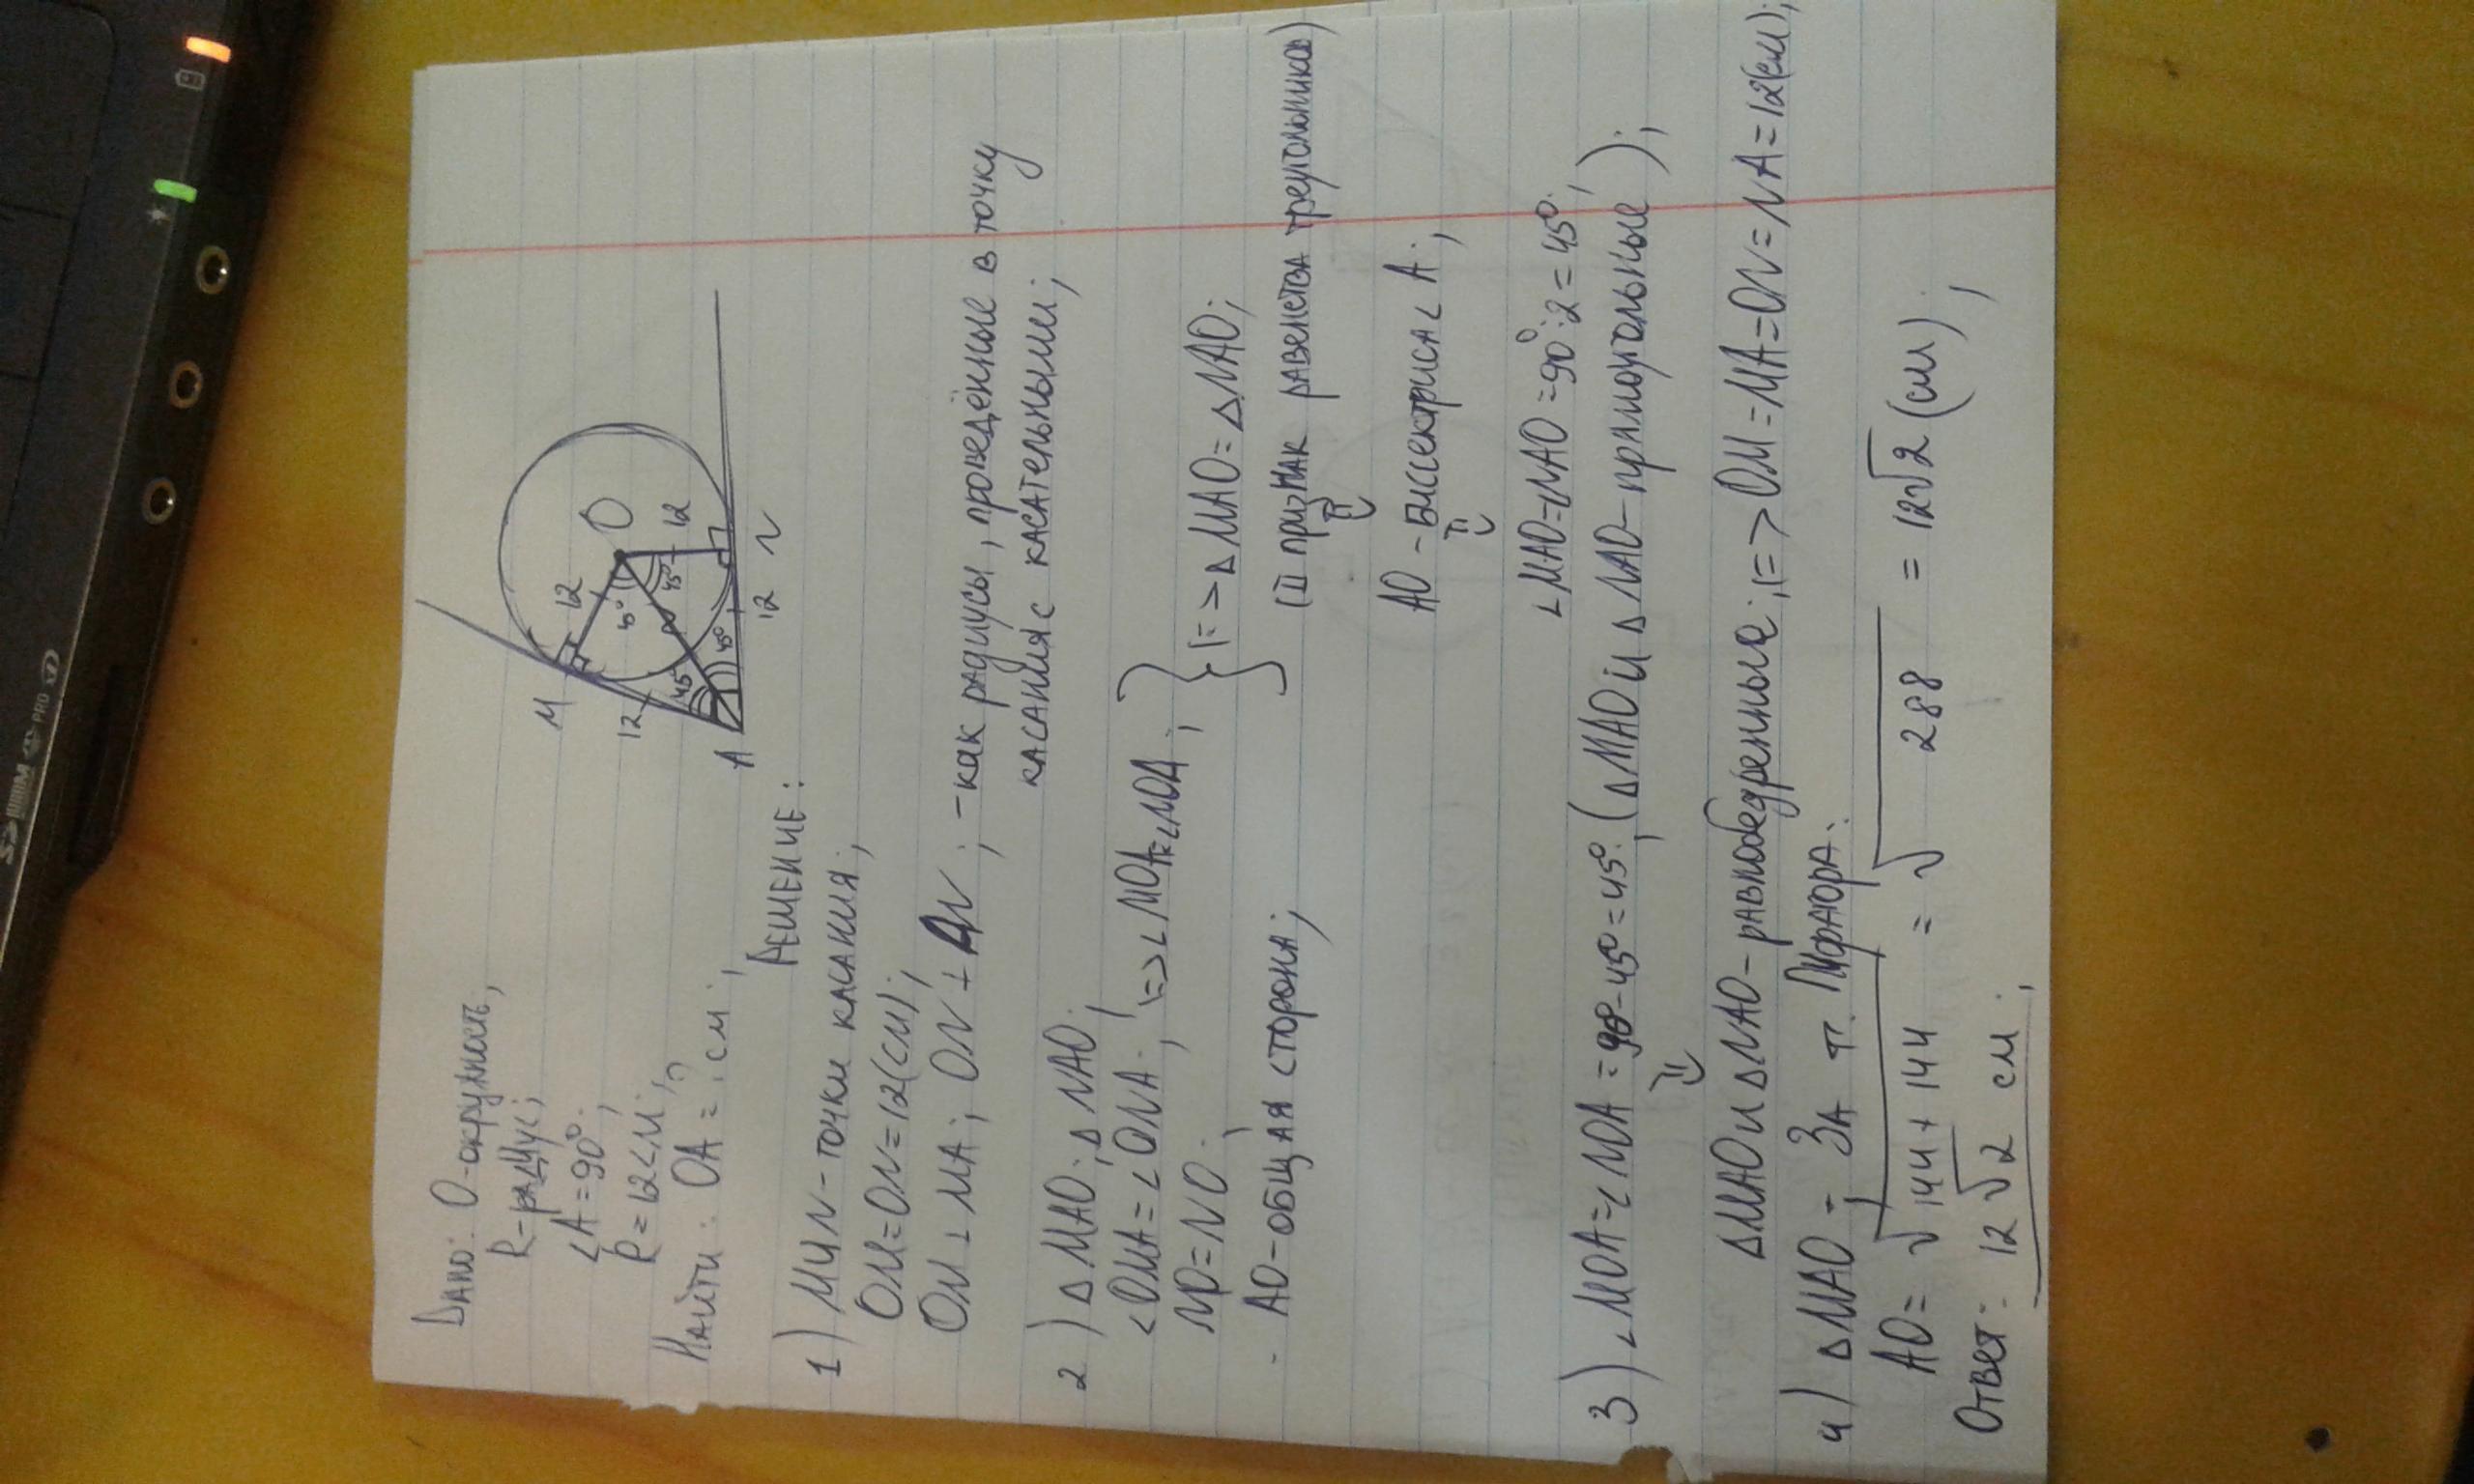 Дано: О-окружность;
R-радиус;
∠A=90°;
R=12см;
Найти: OA=?см;
M
12
12
О
45°
45°
45°
45°
12
A
12
N
Решение:
1) М и N - точки касания;
OM=ON=12(см);
OM ⊥ MA; ON ⊥ AN; -как радиусы, проведённые в точку
касания с касательными;
2) △MAO; △NAO;
∠OMA=∠ONA; => ∠MOA=∠NOA;
MO=NO;
} => △MAO=△NAO;
- AO-общая сторона;
(II признак равенства треугольников)
⇓
AO - биссектриса ∠ A;
⇓
∠MAO=∠NAO=90°:2=45°;
3) ∠MOA=∠NOA=90°-45°=45°; (△MAO и △NAO-прямоугольные);
⇓
△MAO и △NAO-равнобедренные; => OM=MA=ON=NA=12(см);
4) △MAO - За т. Пифагора:
AO=√144+144 = √288 = 12√2 (см);
Ответ: 12√2 см;
PRO